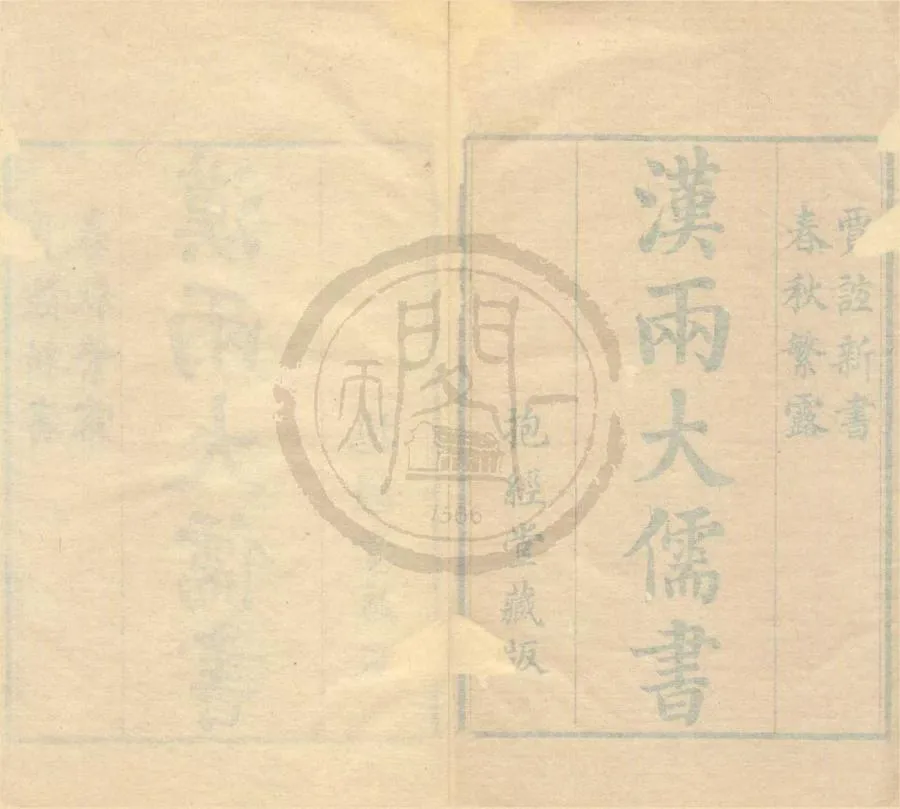 賈誼新書
春秋繁露
漢兩大儒書
抱經堂藏版
天一閣
1566